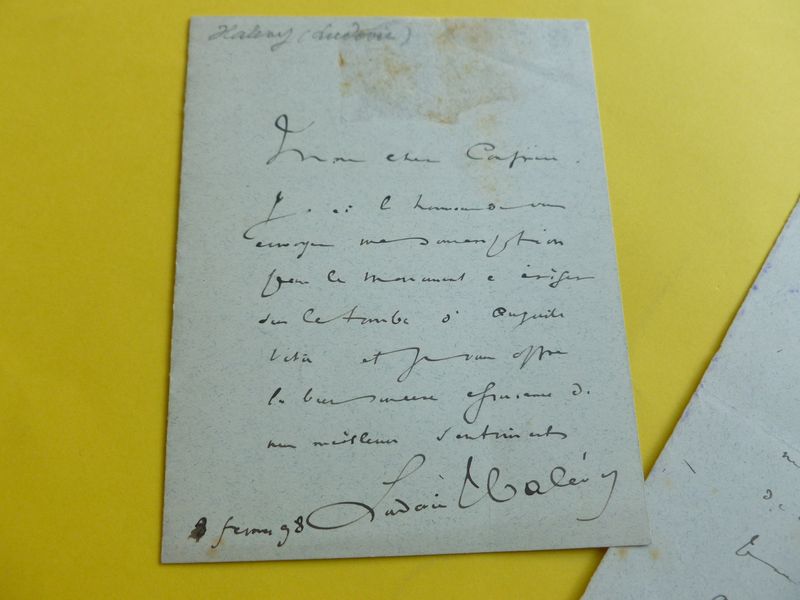 Halévy (Ludovic)
Mon cher Confrère.
J'ai l'honneur de vous
envoyer ma souscription
pour le monument à ériger
sur la tombe d'Auguste
Vitu et je vous offre
la bien sincère expression de
mes meilleurs sentiments
Ludovic Halévy
8 février 98